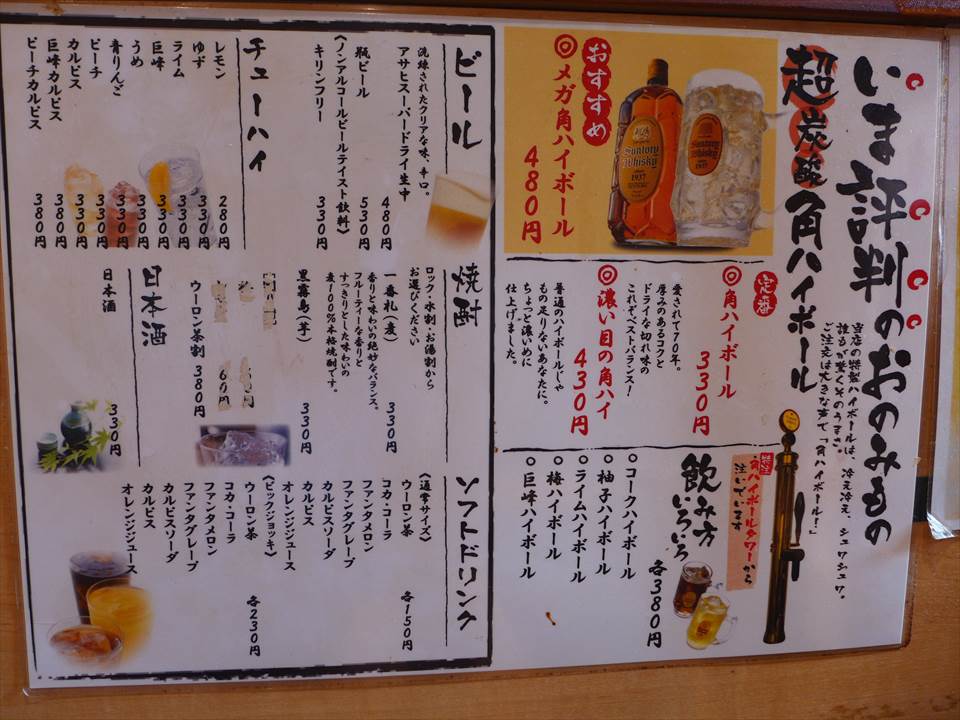 いま評判のおのみもの
超炭酸角ハイボール
当店の特製ハイボールは、冷え冷え、シュワシュワ。
誰もが驚くそのうまさ。
ご注文は大きな声で「角ハイボール!」
おすすめ
◎メガ角ハイボール
480円
Suntory
Whisky
1937
Suntory
Whisky
1937
定番
◎角ハイボール
330円
愛されて70年。
厚みのあるコクと
ドライな切れ味の
これぞベストバランス!
◎濃い目の角ハイ
430円
普通のハイボールじゃ
もの足りないあなたに。
ちょっと濃いめに
仕上げました。
特注
角ハイボールタワーから
注いでいます
飲み方
いろいろ
各380円
○コークハイボール
○柚子ハイボール
○ライムハイボール
○梅ハイボール
○巨峰ハイボール
ビール
洗練されたクリアな味、辛口。
アサヒスーパードライ生中
480円
瓶ビール
530円
《ノンアルコールビールテイスト飲料》
キリンフリー
330円
チューハイ
レモン
280円
ゆず
330円
ライム
330円
巨峰
330円
うめ
330円
青りんご
330円
ピーチ
330円
カルピス
380円
巨峰カルピス
380円
ピーチカルピス
380円
焼酎
ロック・水割・お湯割から
お選びください
一番札(麦)
330円
香りと味わいの絶妙なバランス。
フルーティーな香りと
すっきりとした味わいの
麦100%本格焼酎です。
黒霧島(芋)
330円
60円
ウーロン茶割
380円
日本酒
日本酒
330円
ソフトドリンク
《通常サイズ》
各150円
ウーロン茶
コカ・コーラ
ファンタメロン
ファンタグレープ
カルピスソーダ
カルピス
オレンジジュース
《ビックジョッキ》
各230円
ウーロン茶
コカ・コーラ
ファンタメロン
ファンタグレープ
カルピスソーダ
カルピス
オレンジジュース